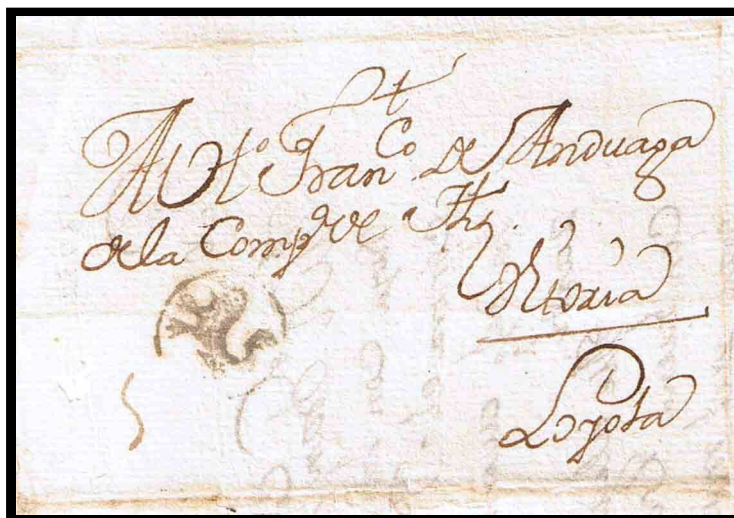 †
Al H.º Fran.co de Anduaga
de la Comp.ª de Jhs.
Vitoria
Loyola